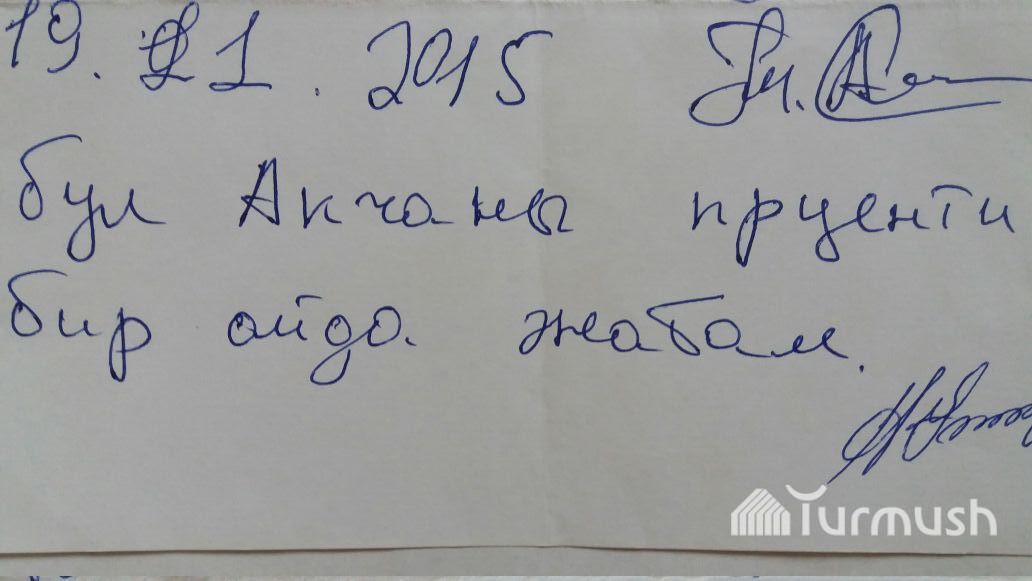 19. 21. 2015
бул Акчаны пруенти
бир айда жабам.
Turmush